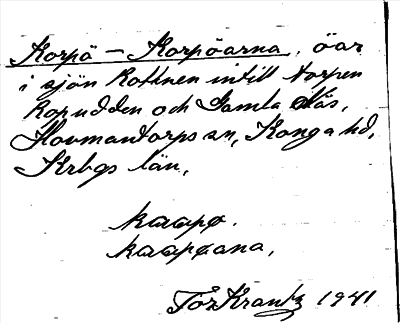 Korpö – Korpöarna, öar
i sjön Rottnen intill torpen
Kopudden och Gamla Näs,
Hovmantorps sn, Konga hd,
Krbgs län,
kɷɷpø.
kɷɷpøana,
Tor Krantz 1941